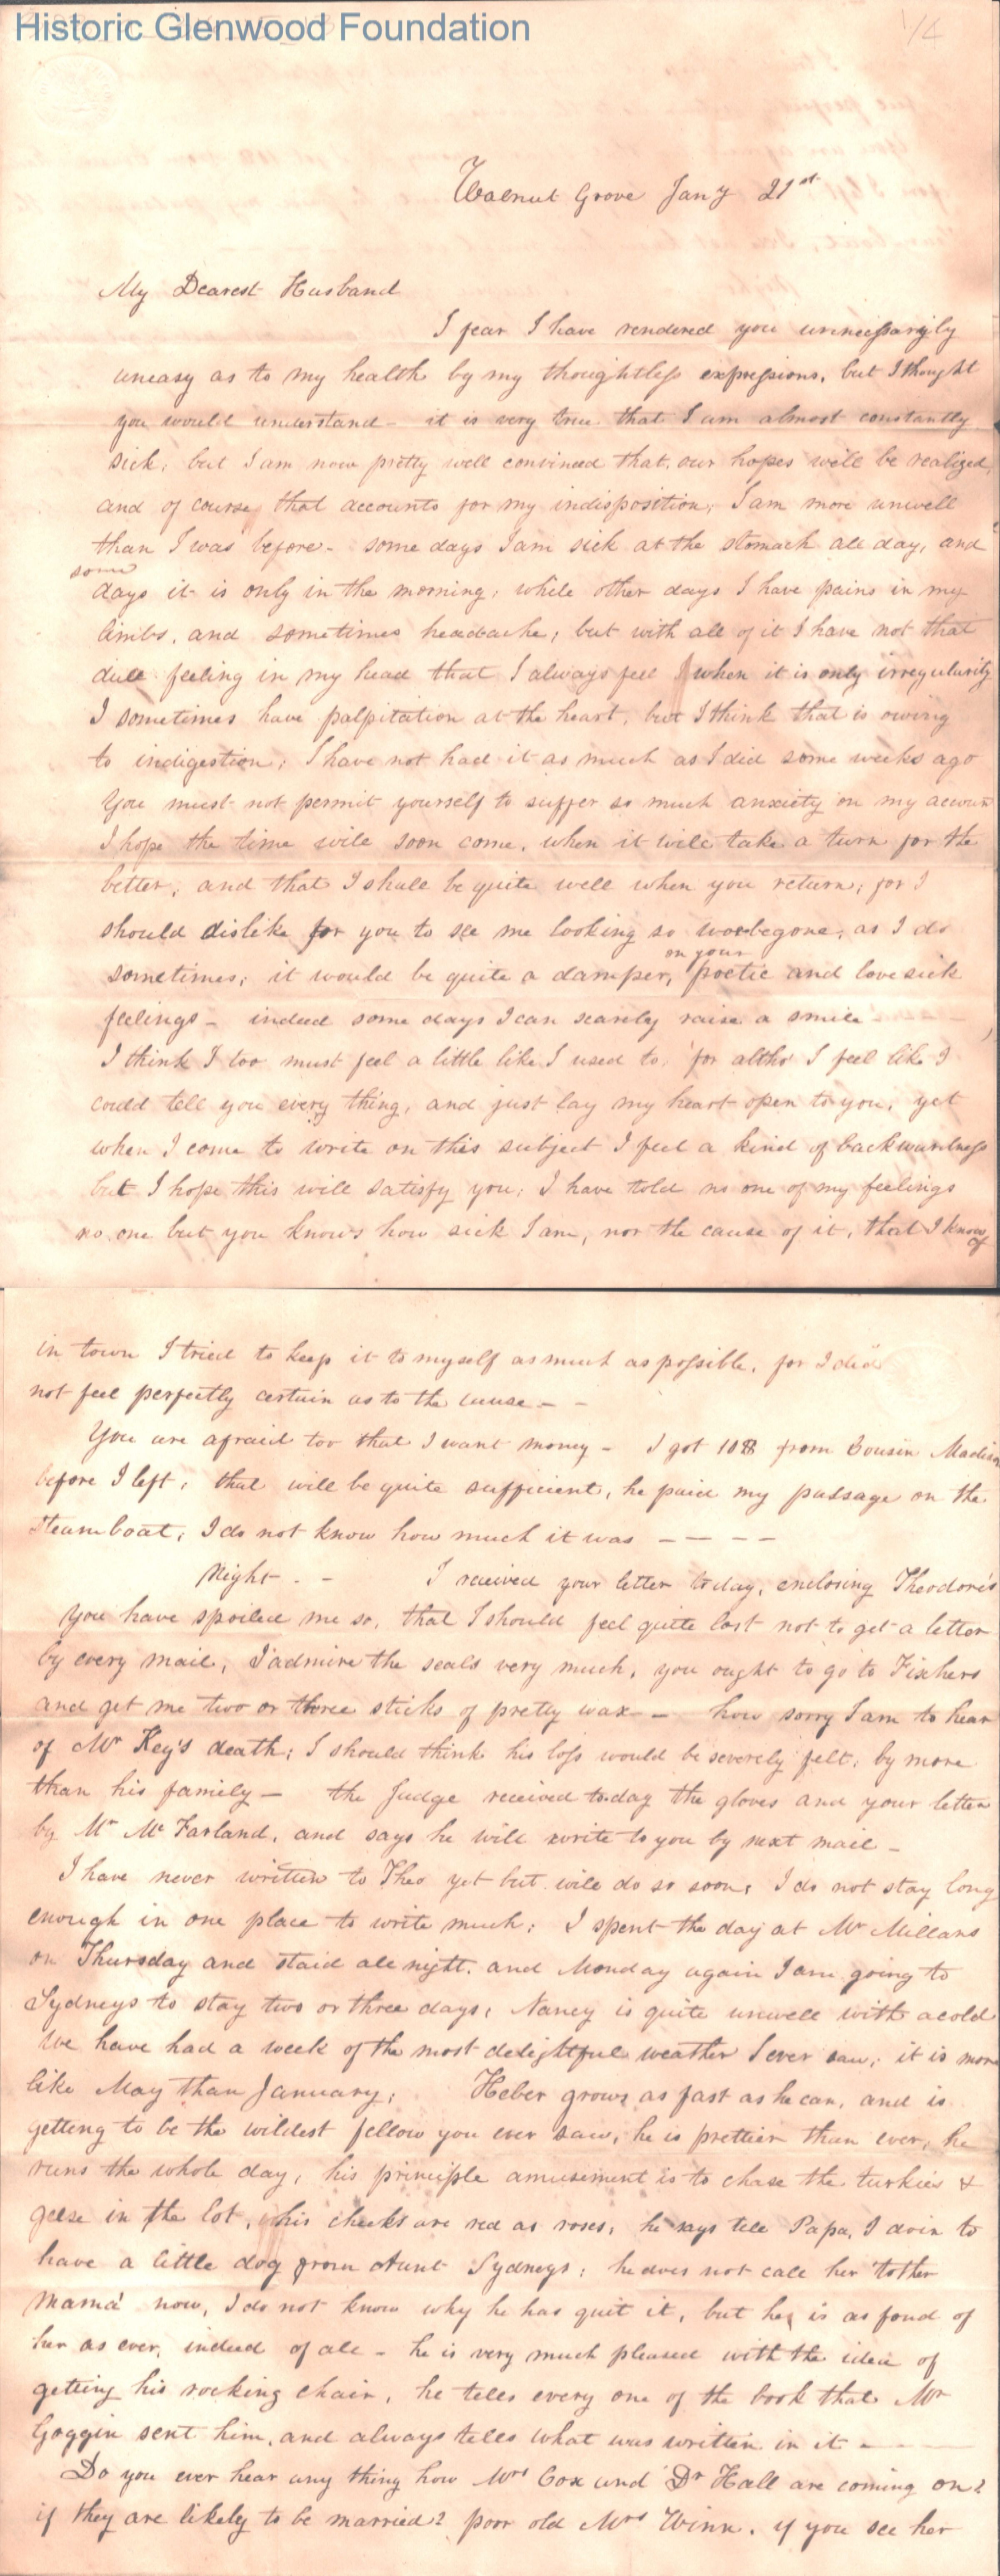 Historic Glenwood Foundation
1/4
Walnut Grove Jany 21st
My Dearest Husband
I fear I have rendered you unnecessarily
uneasy as to my health by my thoughtless expressions, but I thought
you would understand - it is very true that I am almost constantly
sick, but I am now pretty well convinced that our hopes will be realized,
and of course that accounts for my indisposition, I am more unwell
than I was before - some days I am sick at the stomach all day, and
some
days it is only in the morning, while other days I have pains in my
limbs, and sometimes headache; but with all of it I have not that
dull feeling in my head that I always feel when it is only irregularity
I sometimes have palpitation at the heart, but I think that is owing
to indigestion; I have not had it as much as I did some weeks ago
You must not permit yourself to suffer so much anxiety on my account
I hope the time will soon come, when it will take a turn for the
better, and that I shall be quite well when you return; for I
should dislike for you to see me looking so woebegone, as I do
on your
sometimes; it would be quite a damper, poetic and lovesick
feelings - indeed some days I can scarcely raise a smile
I think I too must feel a little like I used to, for altho' I feel like I
could tell you every thing, and just lay my heart open to you, yet
when I come to write on this subject I feel a kind of backwardness
but I hope this will satisfy you; I have told no one of my feelings
no one but you knows how sick I am, nor the cause of it, that I know
of
in town I tried to keep it to myself as much as possible, for I did
not feel perfectly certain as to the cause - -
You are afraid too that I want money - I got 10$ from Cousin Madison
before I left, that will be quite sufficient, he paid my passage on the
Steamboat, I do not know how much it was - - - -
Night. - I received your letter today, enclosing Theodore's
You have spoiled me so, that I should feel quite lost not to get a letter
by every mail, I admire the seals very much, you ought to go to Fishers
and get me two or three sticks of pretty wax - - how sorry I am to hear
of Mr Key's death; I should think his loss would be severely felt, by more
than his family - the Judge received today the gloves and your letter
by Mr McFarland, and says he will write to you by next mail -
I have never written to Theo yet but will do so soon, I do not stay long
enough in one place to write much; I spent the day at Mr Millans
on Thursday and staid all night, and Monday again I am going to
Sydneys to stay two or three days, Nancy is quite unwell with a cold
We have had a week of the most delightful weather I ever saw, it is more
like May than January; Heber grows as fast as he can, and is
getting to be the wildest fellow you ever saw, he is prettier than ever, he
runs the whole day, his principle amusement is to chase the turkies &
geese in the lot, his cheeks are red as roses, he says tell Papa, I doin to
have a little dog from Aunt Sydneys; he does not call her 'tother
Mama' now, I do not know why he has quit it, but he is as fond of
her as ever, indeed of all - he is very much pleased with the idea of
getting his rocking chair, he tells every one of the book that Mr
Goggin sent him, and always tells what was written in it -
Do you ever hear any thing how Mrs Cox and Dr Hall are coming on?
if they are likely to be married? poor old Mrs Winn, if you see her